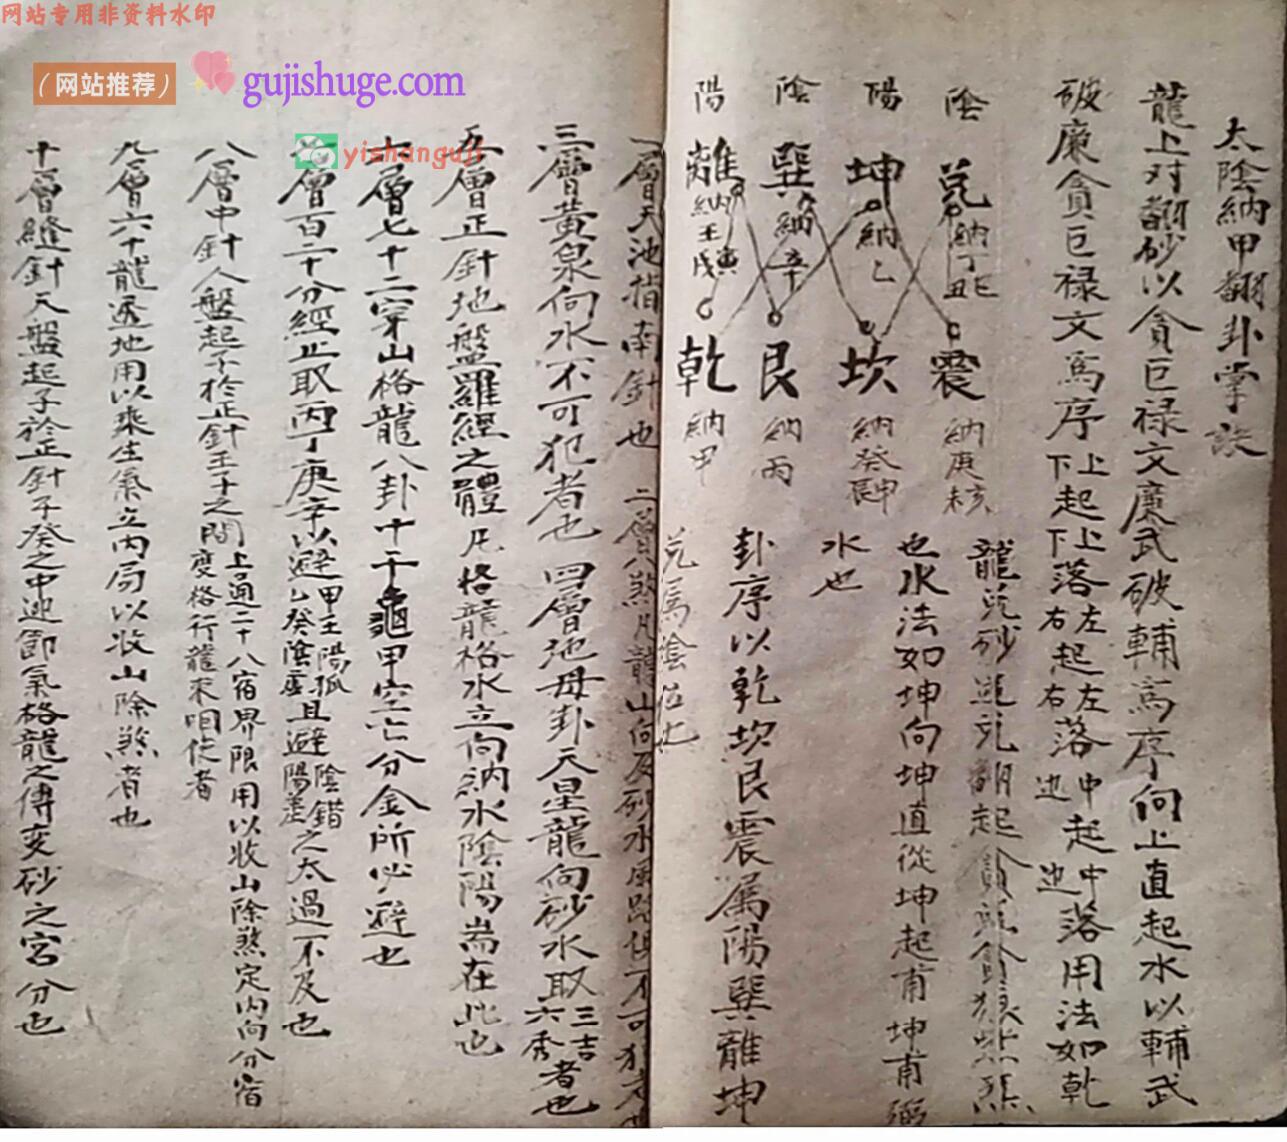 网站专用非资料水印
（网站推荐）
gujishuge.com
yishanguji
太陰納甲翻卦掌訣
龍上对翻砂以貪巨禄文廉武破輔為序向上直起水以輔武
破廉貪巨禄文為序上起下落左起右落中起中落用法如乾
下起上落右起左落边起边
龍兑砂
也水法如坤向坤直從坤起甫坤甫
水也
卦序以乾坎艮震属陽巽離坤
兑属陰位也
陰
兑納丁巳丑
陽
坤納乙
陰
巽納辛
陽
離納壬寅戌
震
納庚亥
坎
納癸申
艮
納丙
乾
納甲
一層天池指南針也 二層八煞凡龍山向及砂水
三層黃泉向水不可犯者也 四層地母卦天星龍向砂水取三吉六秀者也
五層正針地盤羅經之體凡格龍格水立向納水陰陽耑在此也
層七十二穿山格龍八卦十干龜甲空亡分金所必避也
層百二十分經止取丙丁庚辛以避甲壬陽孤乙癸陰虛且避陰錯陽差之太過不及也
八層中針人盤起子於正針壬子之間上通二十八宿界限用以收山除煞定内向分宿
度格行龍來咱使者
九層六十龍透地用以乘生氣立内局以收山除煞者也
十層縫針天盤起子於正針子癸之中迎節氣格龍之傳变砂之宮分也